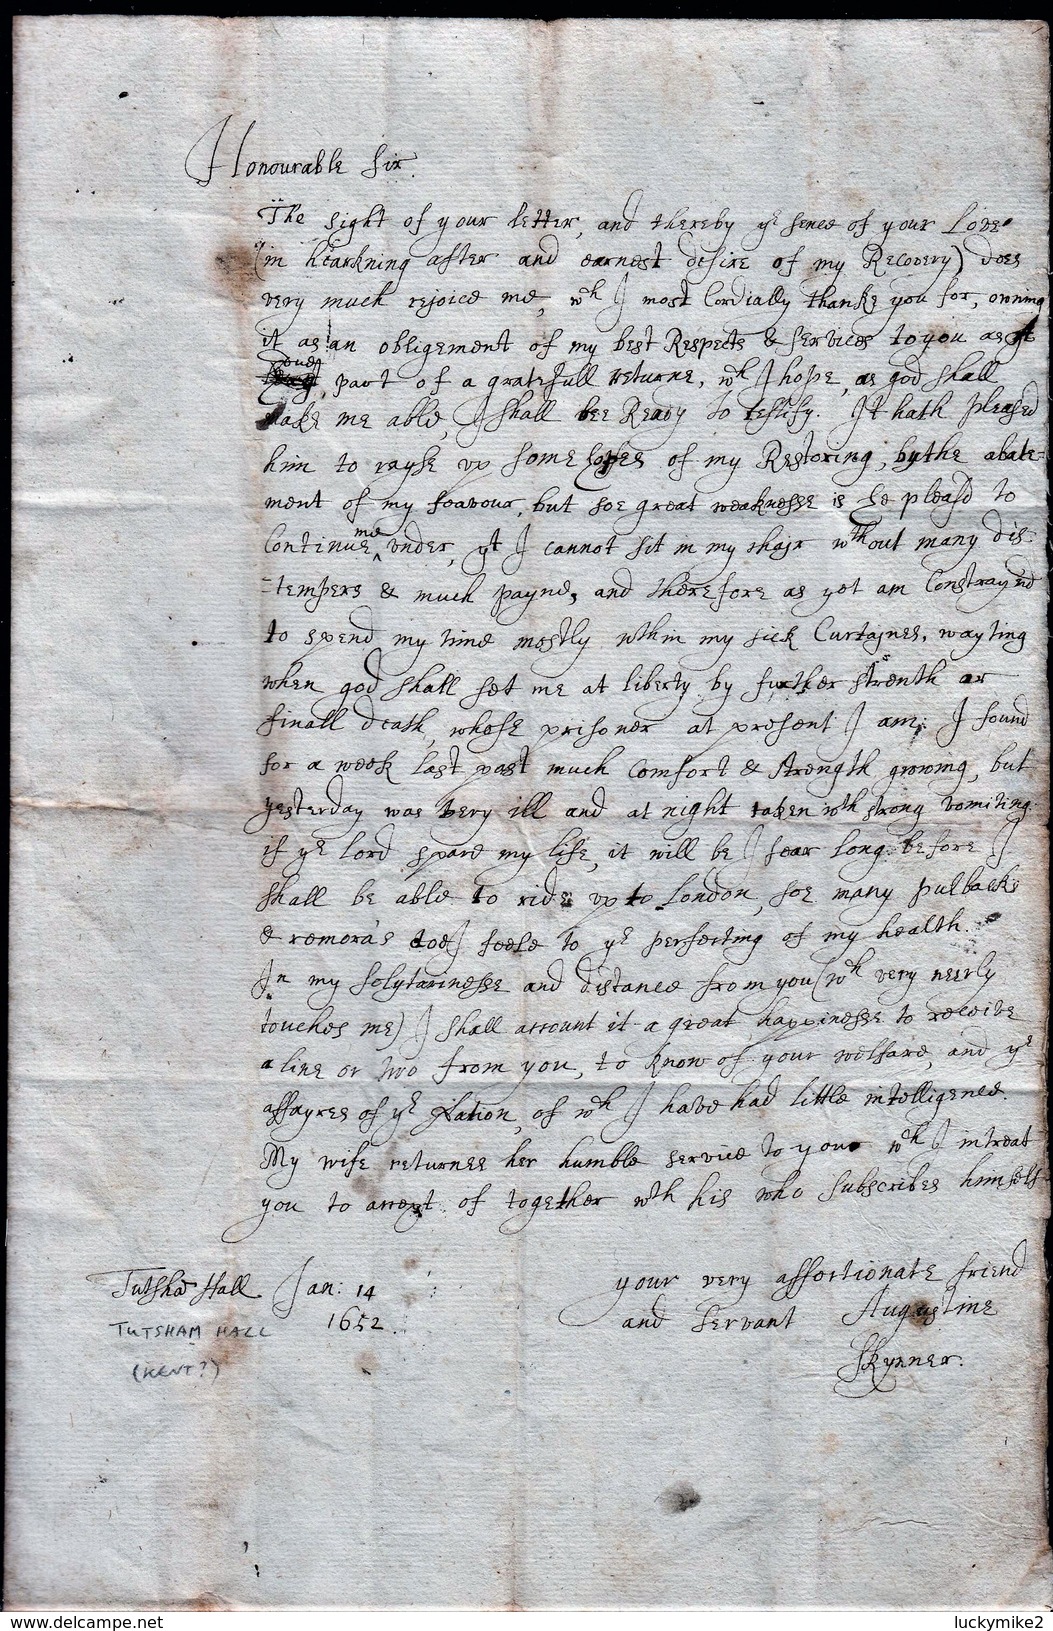 Honourable Sir.
The sight of your letter, and thereby ye sence of your Love
(in hearkning after and earnest desire of my Recovery) does
very much rejoice me, wch I most Cordially thanke you for, owning
it as an obligement of my best Respects & Services to you as
part of a gratefull returne, wch I hope, as god shall
make me able, I shall bee Ready to testify. It hath pleased
him to rayse up some hopes of my Restoring, by the abate=
ment of my feavour, but soe great weaknesse is he pleasd to
Continue me under, yt I cannot sit in my chayr wthout many dis:
=tempers & much payne, and therefore as yet am Constrayned
to spend my time mostly wthin my sick Curtaynes, wayting
when god shall set me at liberty by further strenth or
finall death, whose prisoner at present I am; I found
for a week last past much Comfort & strength growing, but
yesterday was very ill and at night taken wth strong vomiting.
if ye Lord spare my life, it will be I fear long before I
shall be able to ride up to London, soe many pulbacks
& remora's doe I feele to ye perfecting of my health.
In my solytarinesse and distance from you (wch very neerly
touches me) I shall account it a great happinesse to receive
a line or two from you, to know of your welfare, and ye
affayres of ye Nation, of wch I have had little intelligence.
My wife returnes her humble service to you wch I intreat
you to accept of together wth his who subscribes himself
your very affectionate friend
and Servant Augustine
Skynner.
Tutsha Hall. Jan: 14
1652.
TUTSHAM HALL
(KENT?)
www.delcampe.net
luckymike2